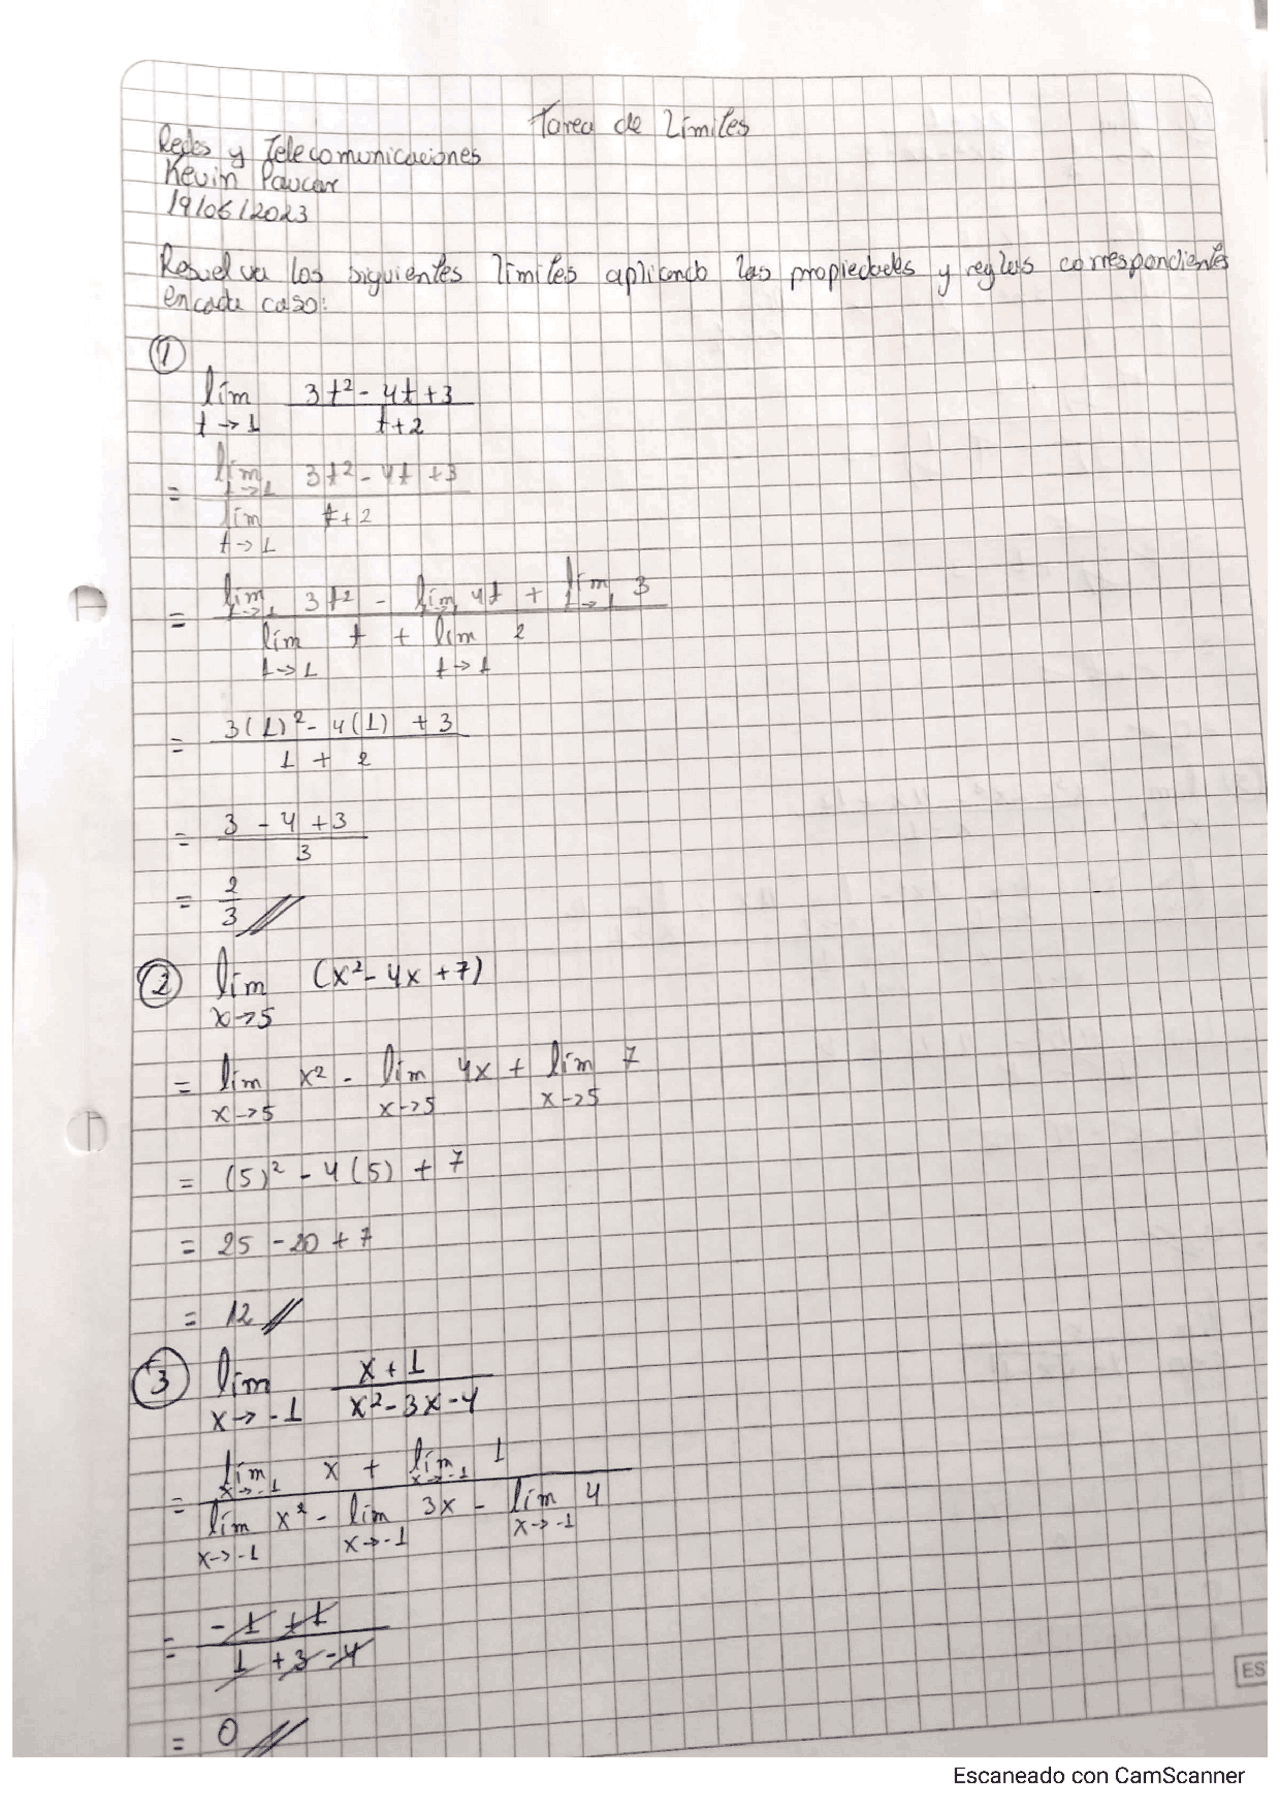 Tarea de Límites
Redes y Telecomunicaciones
Kevin Paucar
19/06/2023
Resuelva los siguientes límites aplicando las propiedades y reglas correspondientes
en cada caso:
1
lím t→1 3t² - 4t + 3
t + 2
= lím t→1 3t² - 4t + 3
lím t→1 t + 2
= lím t→1 3t² - lím t→1 4t + lím t→1 3
lím t→1 t + lím t→1 2
= 3(1)² - 4(1) + 3
1 + 2
= 3 - 4 + 3
3
= 2
3
2 lím x→5 (x² - 4x + 7)
= lím x→5 x² - lím x→5 4x + lím x→5 7
= (5)² - 4(5) + 7
= 25 - 20 + 7
= 12
3 lím x→-1 x + 1
x² - 3x - 4
= lím x→-1 x + lím x→-1 1
lím x→-1 x² - lím x→-1 3x - lím x→-1 4
= -1 + 1
1 + 3 - 4
= 0
ES
Escaneado con CamScanner